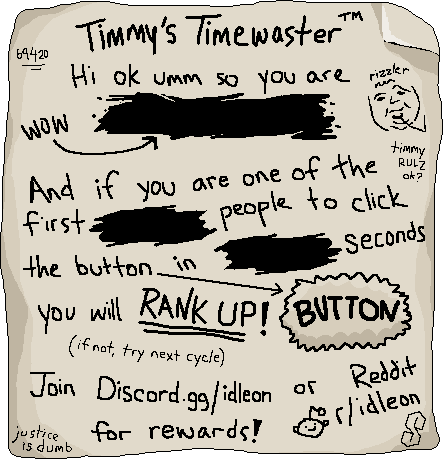 Timmy's Timewaster™
69420
Hi ok umm so you are
rizzler
WOW
timmy
RULZ
ok?
And if you are one of the
first people to click
the button in seconds
you will RANK UP!
BUTTON
(if not, try next cycle)
Join Discord.gg/idleon or Reddit
r/idleon
for rewards!
justice
is dumb